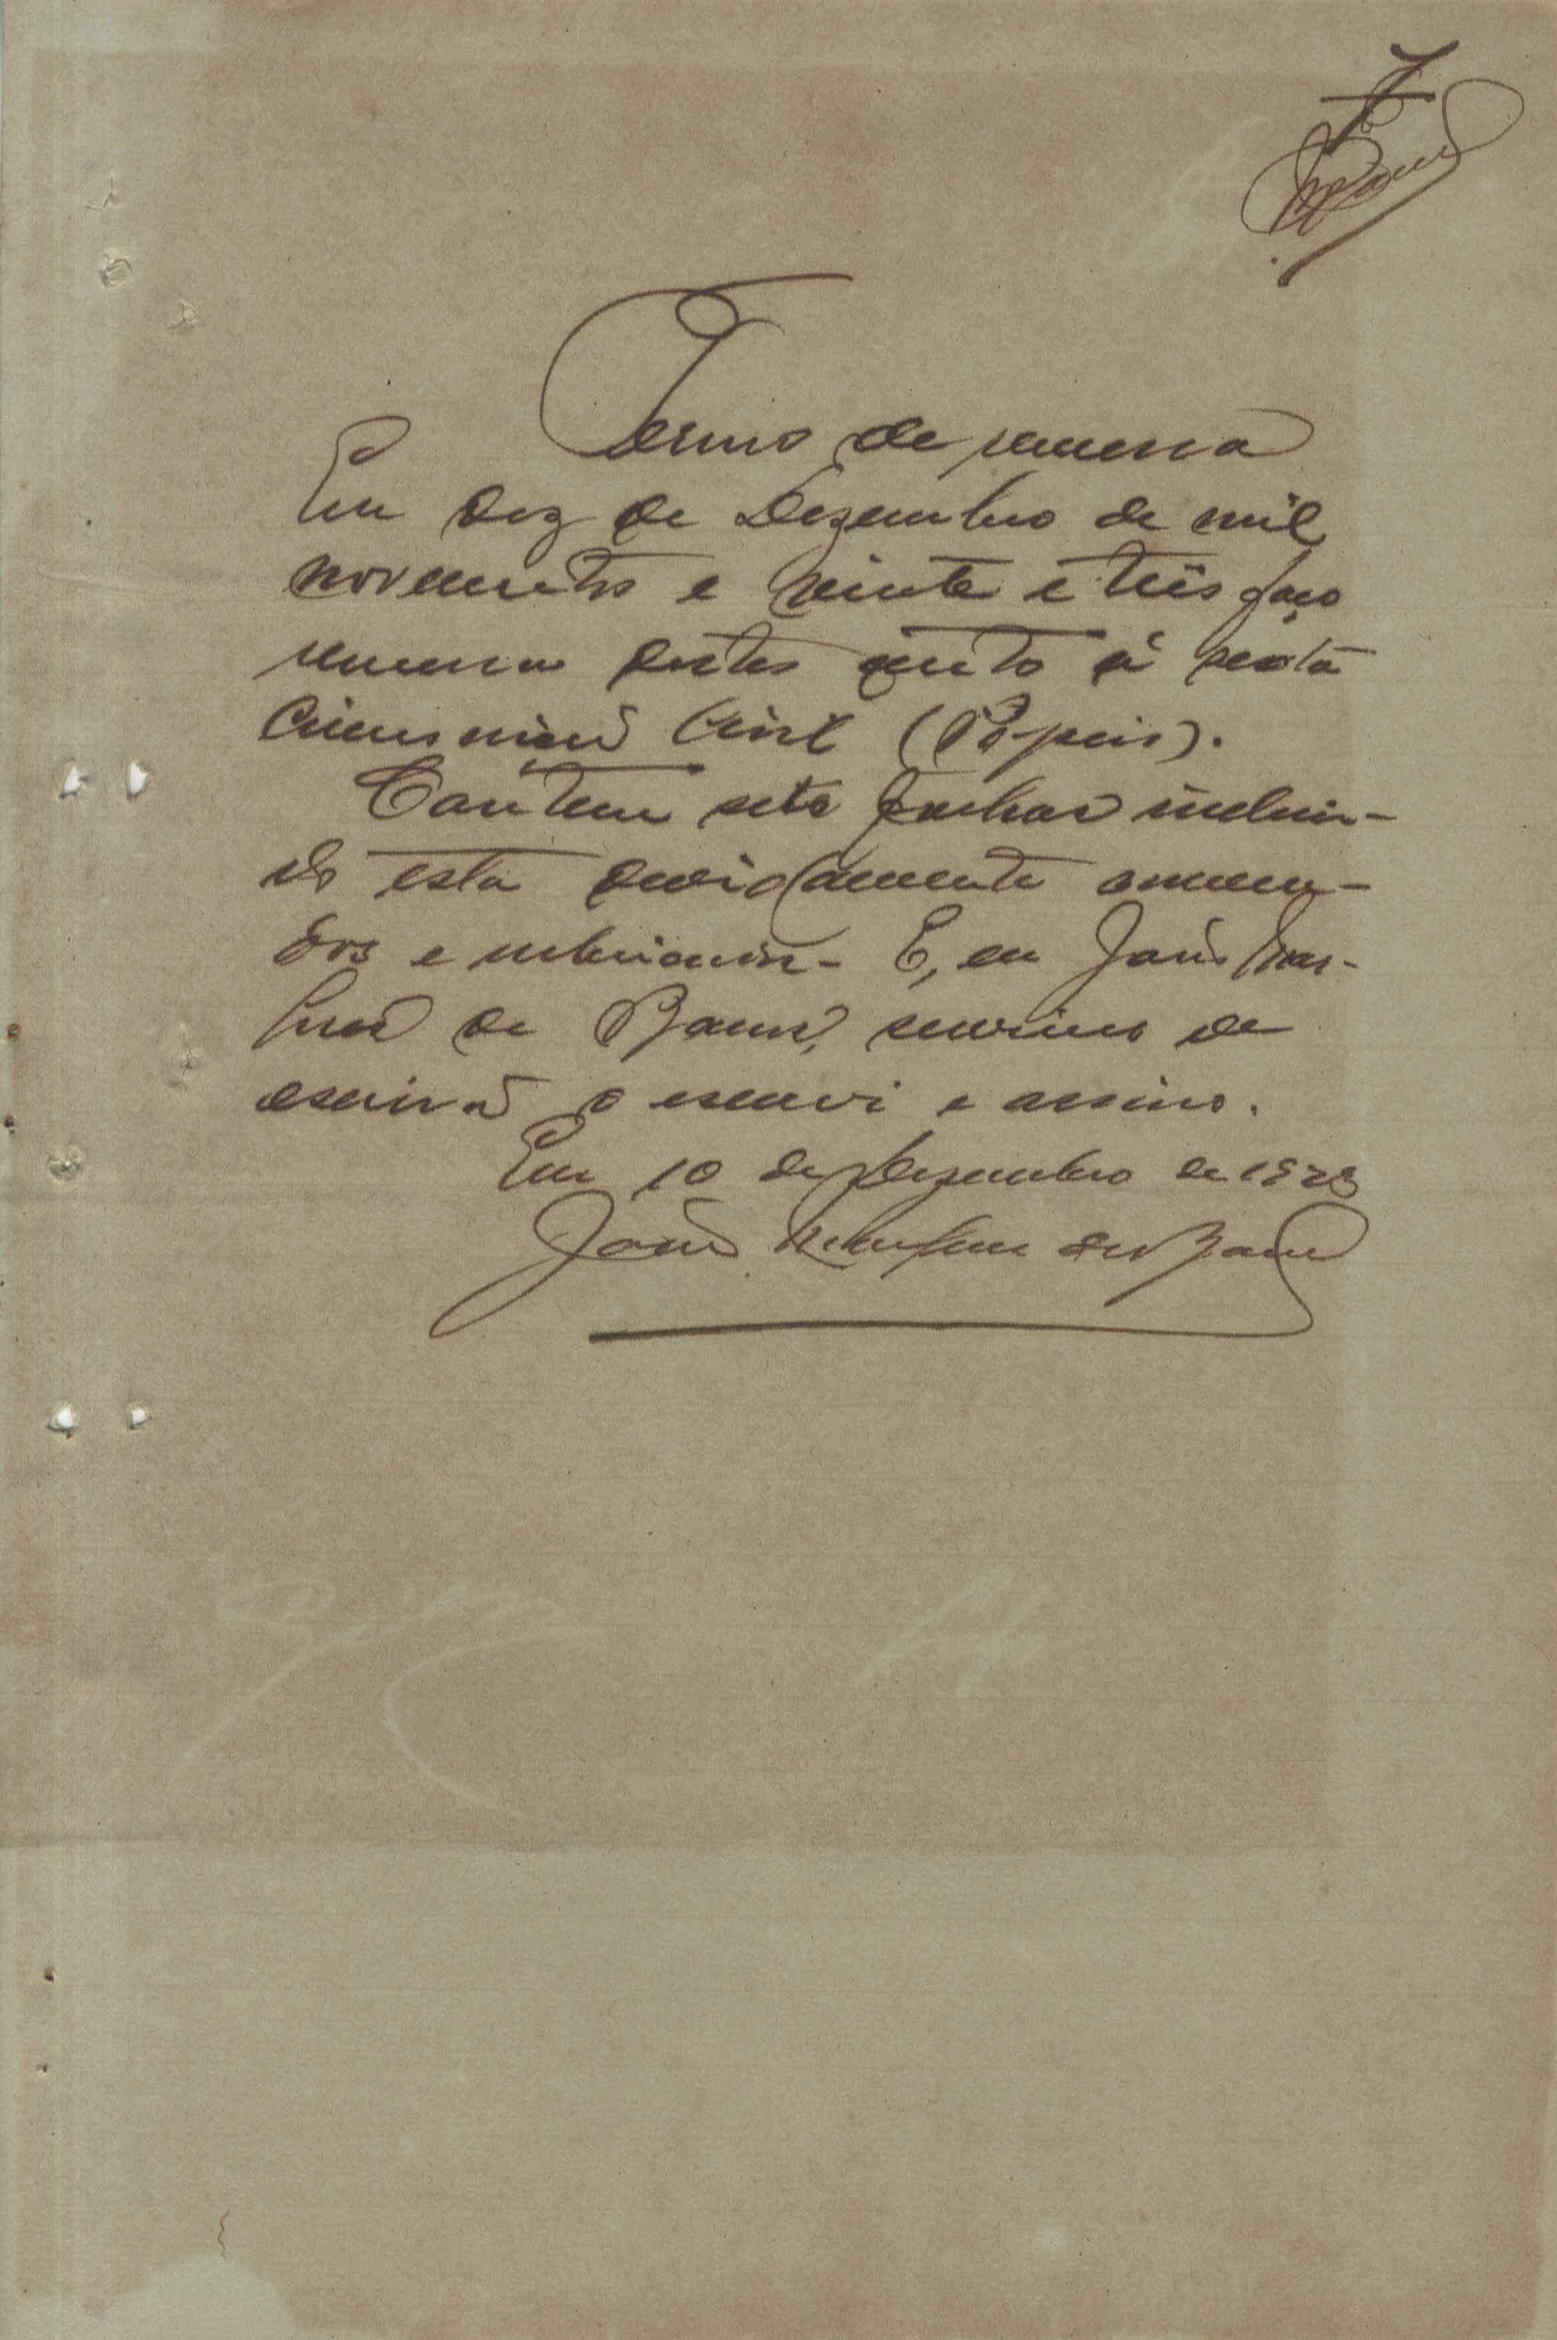 7
Termo de remessa
Em dez de Dezembro de mil
novecentos e vinte e tres faço
remessa destes auto á sexta
Circumscripção Civil
Contem sete folhas incluin-
do esta devidamente numera-
das e rubricadas - E, eu João
de Barros, servindo de
escrivão o escrevi e assino.
Em 10 de Dezembro de 1923
João de Barros